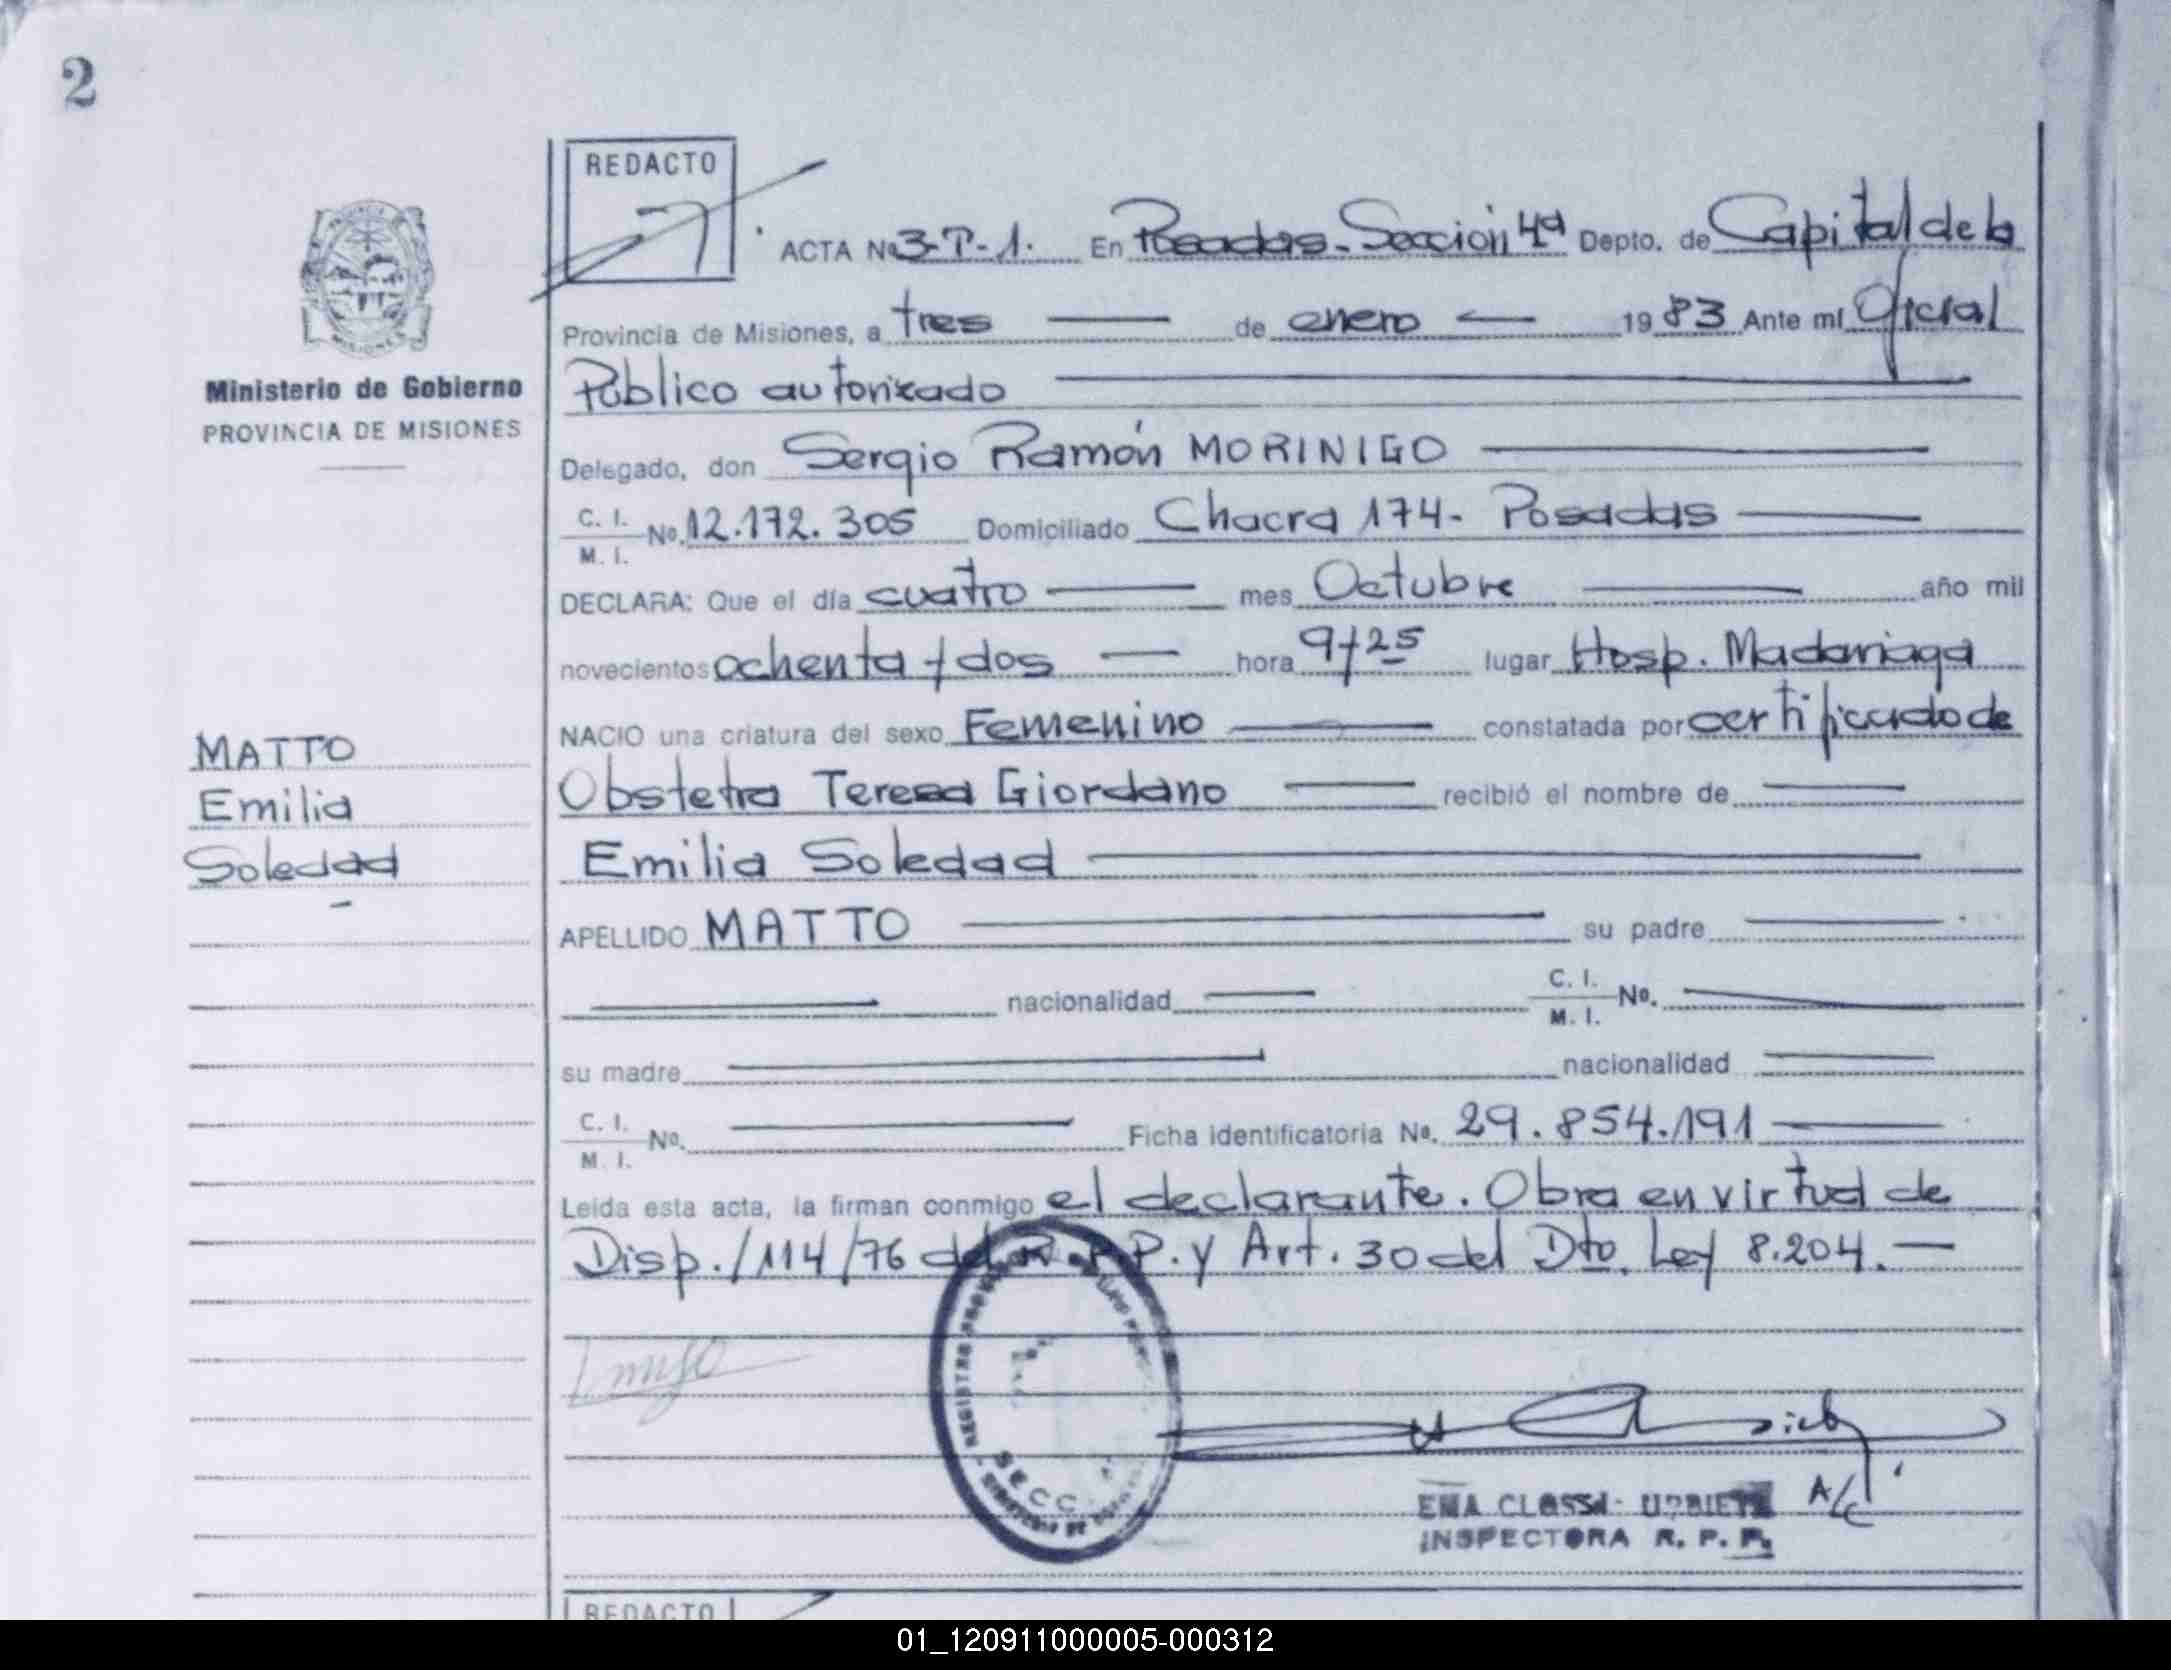 2
REDACTO
ACTA No 3-T-1. En Posadas-Sección 4ª Depto. de Capital de la
Provincia de Misiones, a tres de enero 1983 Ante mí Oficial
Público autorizado
Ministerio de Gobierno
PROVINCIA DE MISIONES
Delegado, don Sergio Ramón MORINIGO
C. I.
M. I. No. 12.172.305 Domiciliado Chacra 174- Posadas
DECLARA: Que el día cuatro mes Octubre año mil
novecientos ochenta y dos hora 9y25 lugar Hosp. Madariaga
NACIO una criatura del sexo Femenino constatada por certificado de
Obstetra Teresa Giordano recibió el nombre de
Emilia Soledad
MATTO
Emilia
Soledad
APELLIDO MATTO su padre
nacionalidad C. I.
M. I. No.
su madre nacionalidad
C. I.
M. I. No. Ficha identificatoria No. 29.854.191
Leida esta acta, la firman conmigo el declarante. Obra en virtud de
Disp./114/76 del R.P.P. y Art. 30 del Dto. Ley 8.204.
REGISTRO
SECC
EMA
INSPECTORA R. P. P.
A/C
REDACTO
01_120911000005-000312